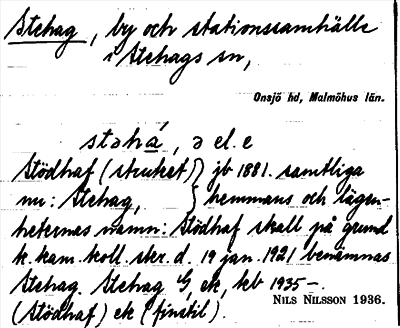 Stehag, by och stationssamhälle
i Stehags sn,
Onsjö hd, Malmöhus län.
stəhá, ə el. e
Stödhaf (struket) } jb 1881. samtliga
nu: Stehag, } hemmans och lägen-
heternas namn: Stödhaf skall på grund
k. kam. koll. skr. d. 19 jan. 1921 benämnas
Stehag. Stehag G, ek, kb 1935–.
(Stödhaf) ek (finstil).
NILS NILSSON 1936.